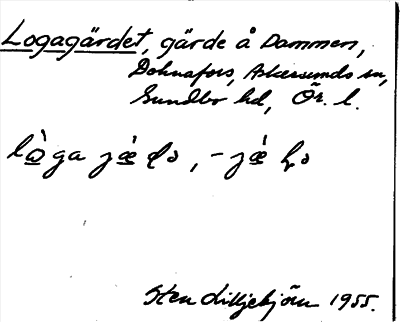 Logagärdet, gärde å Dammen,
Dohnafors, Askersunds sn,
Sundbo hd, Ör. l.
lò̱ga jǽḍə, -jǽḥə
Sten Liljebjörn 1955.